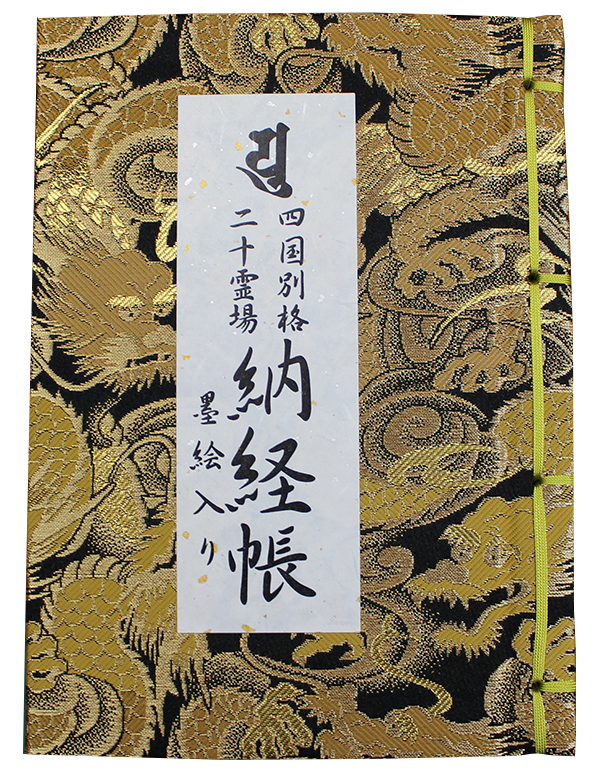 𑖧𑖲
四国別格
二十霊場
納経帳
墨絵入り